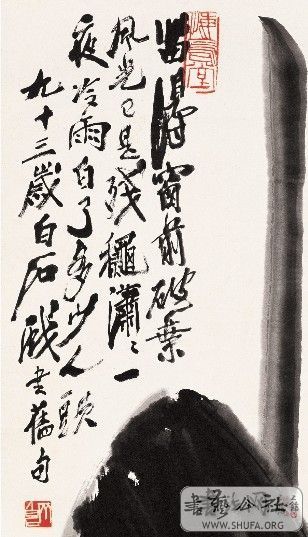 留得窗前破葉
風光已是殘龝瀟〻一
夜冷雨白了多少人頭
九十三歲白石戲書舊句
書藝公社
WWW.SHUFA.ORG